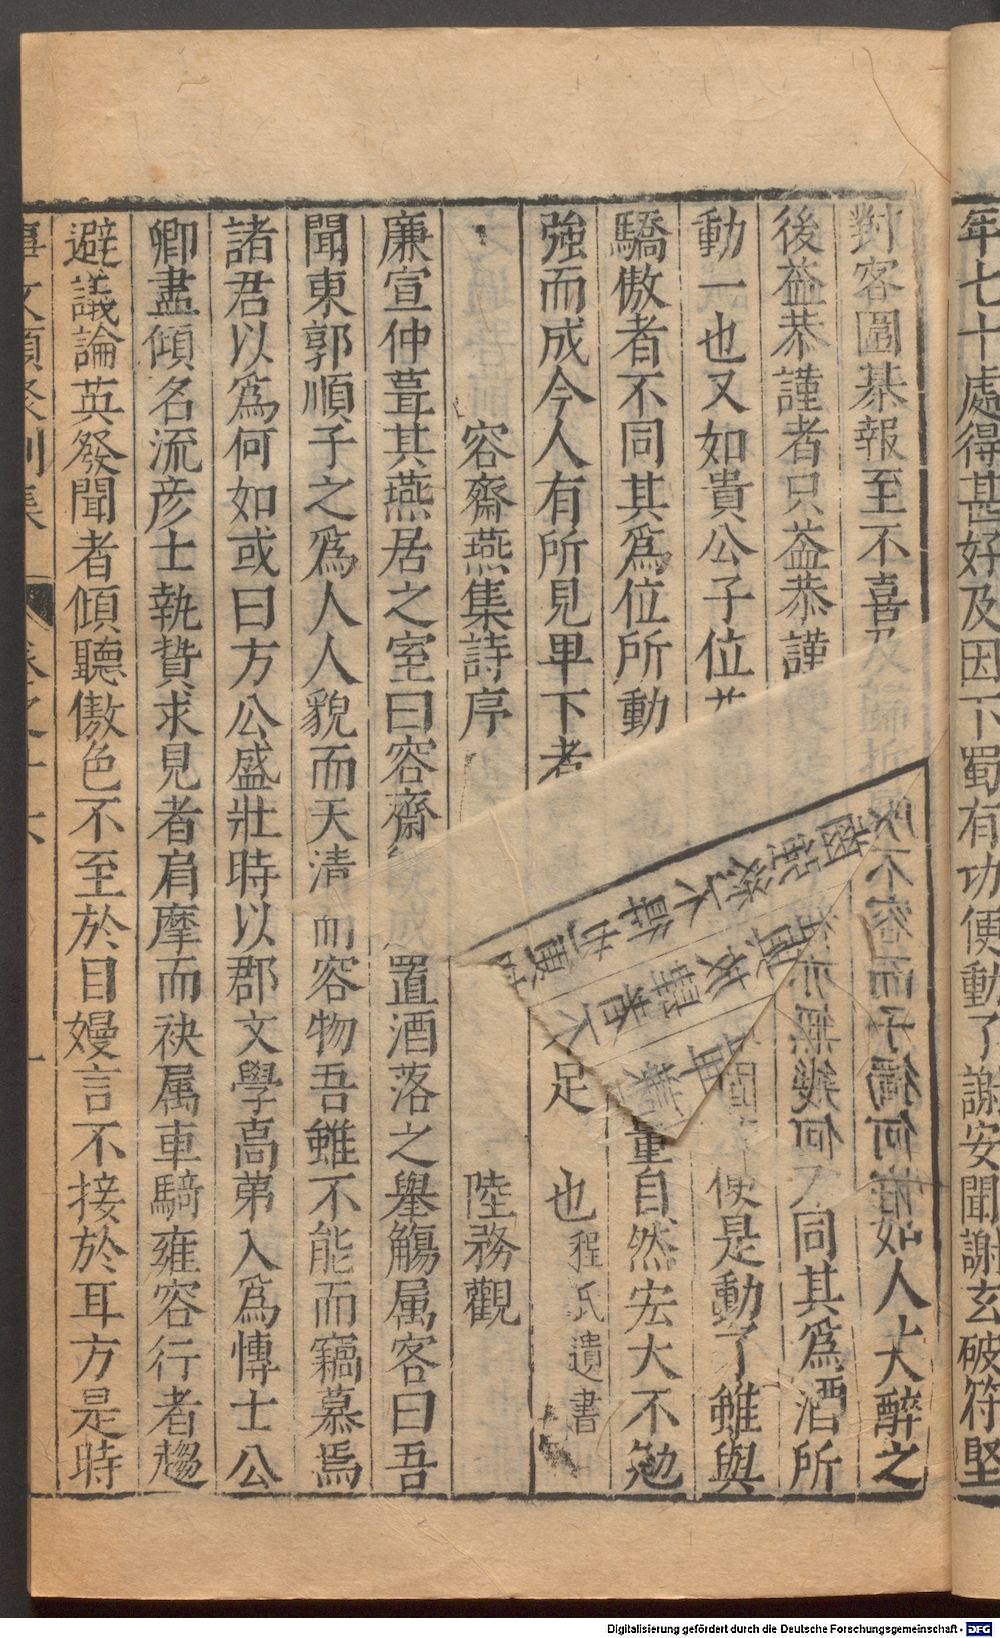 年七十處得甚好及因下蜀有功便動了謝安聞謝玄破符堅
對客圍棊報至不喜及歸折屐齒 如人大醉之
後益恭謹者只益恭謹 同其爲酒所
動一也又如貴公子位 便是動了雖與
驕傲者不同其爲位所動 量自然宏大不勉
強而成今人有所見卑下者 不足也程氏遺書
容齋燕集詩序 陸務觀
廉宣仲葺其燕居之室曰容齋 成置酒落之舉觴属客曰吾
聞東郭順子之爲人人貌而天清而容物吾雖不能而竊慕焉
諸君以爲何如或曰方公盛壯時以郡文學高第入爲博士公
卿盡傾名流彦士執贄求見者肩摩而袂属車騎雍容行者趨
避議論英發聞者傾聽傲色不至於目嫚言不接於耳方是時
事文類聚別集 卷之十六
Digitalisierung gefördert durch die Deutsche Forschungsgemeinschaft - DFG